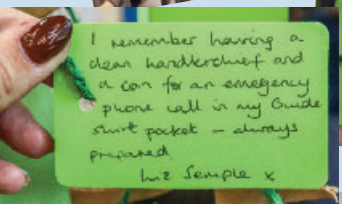 I remember having a
clean handkerchief and
a coin for an emergency
phone call in my Guide
shirt pocket – always
prepared.
Liz Semple x